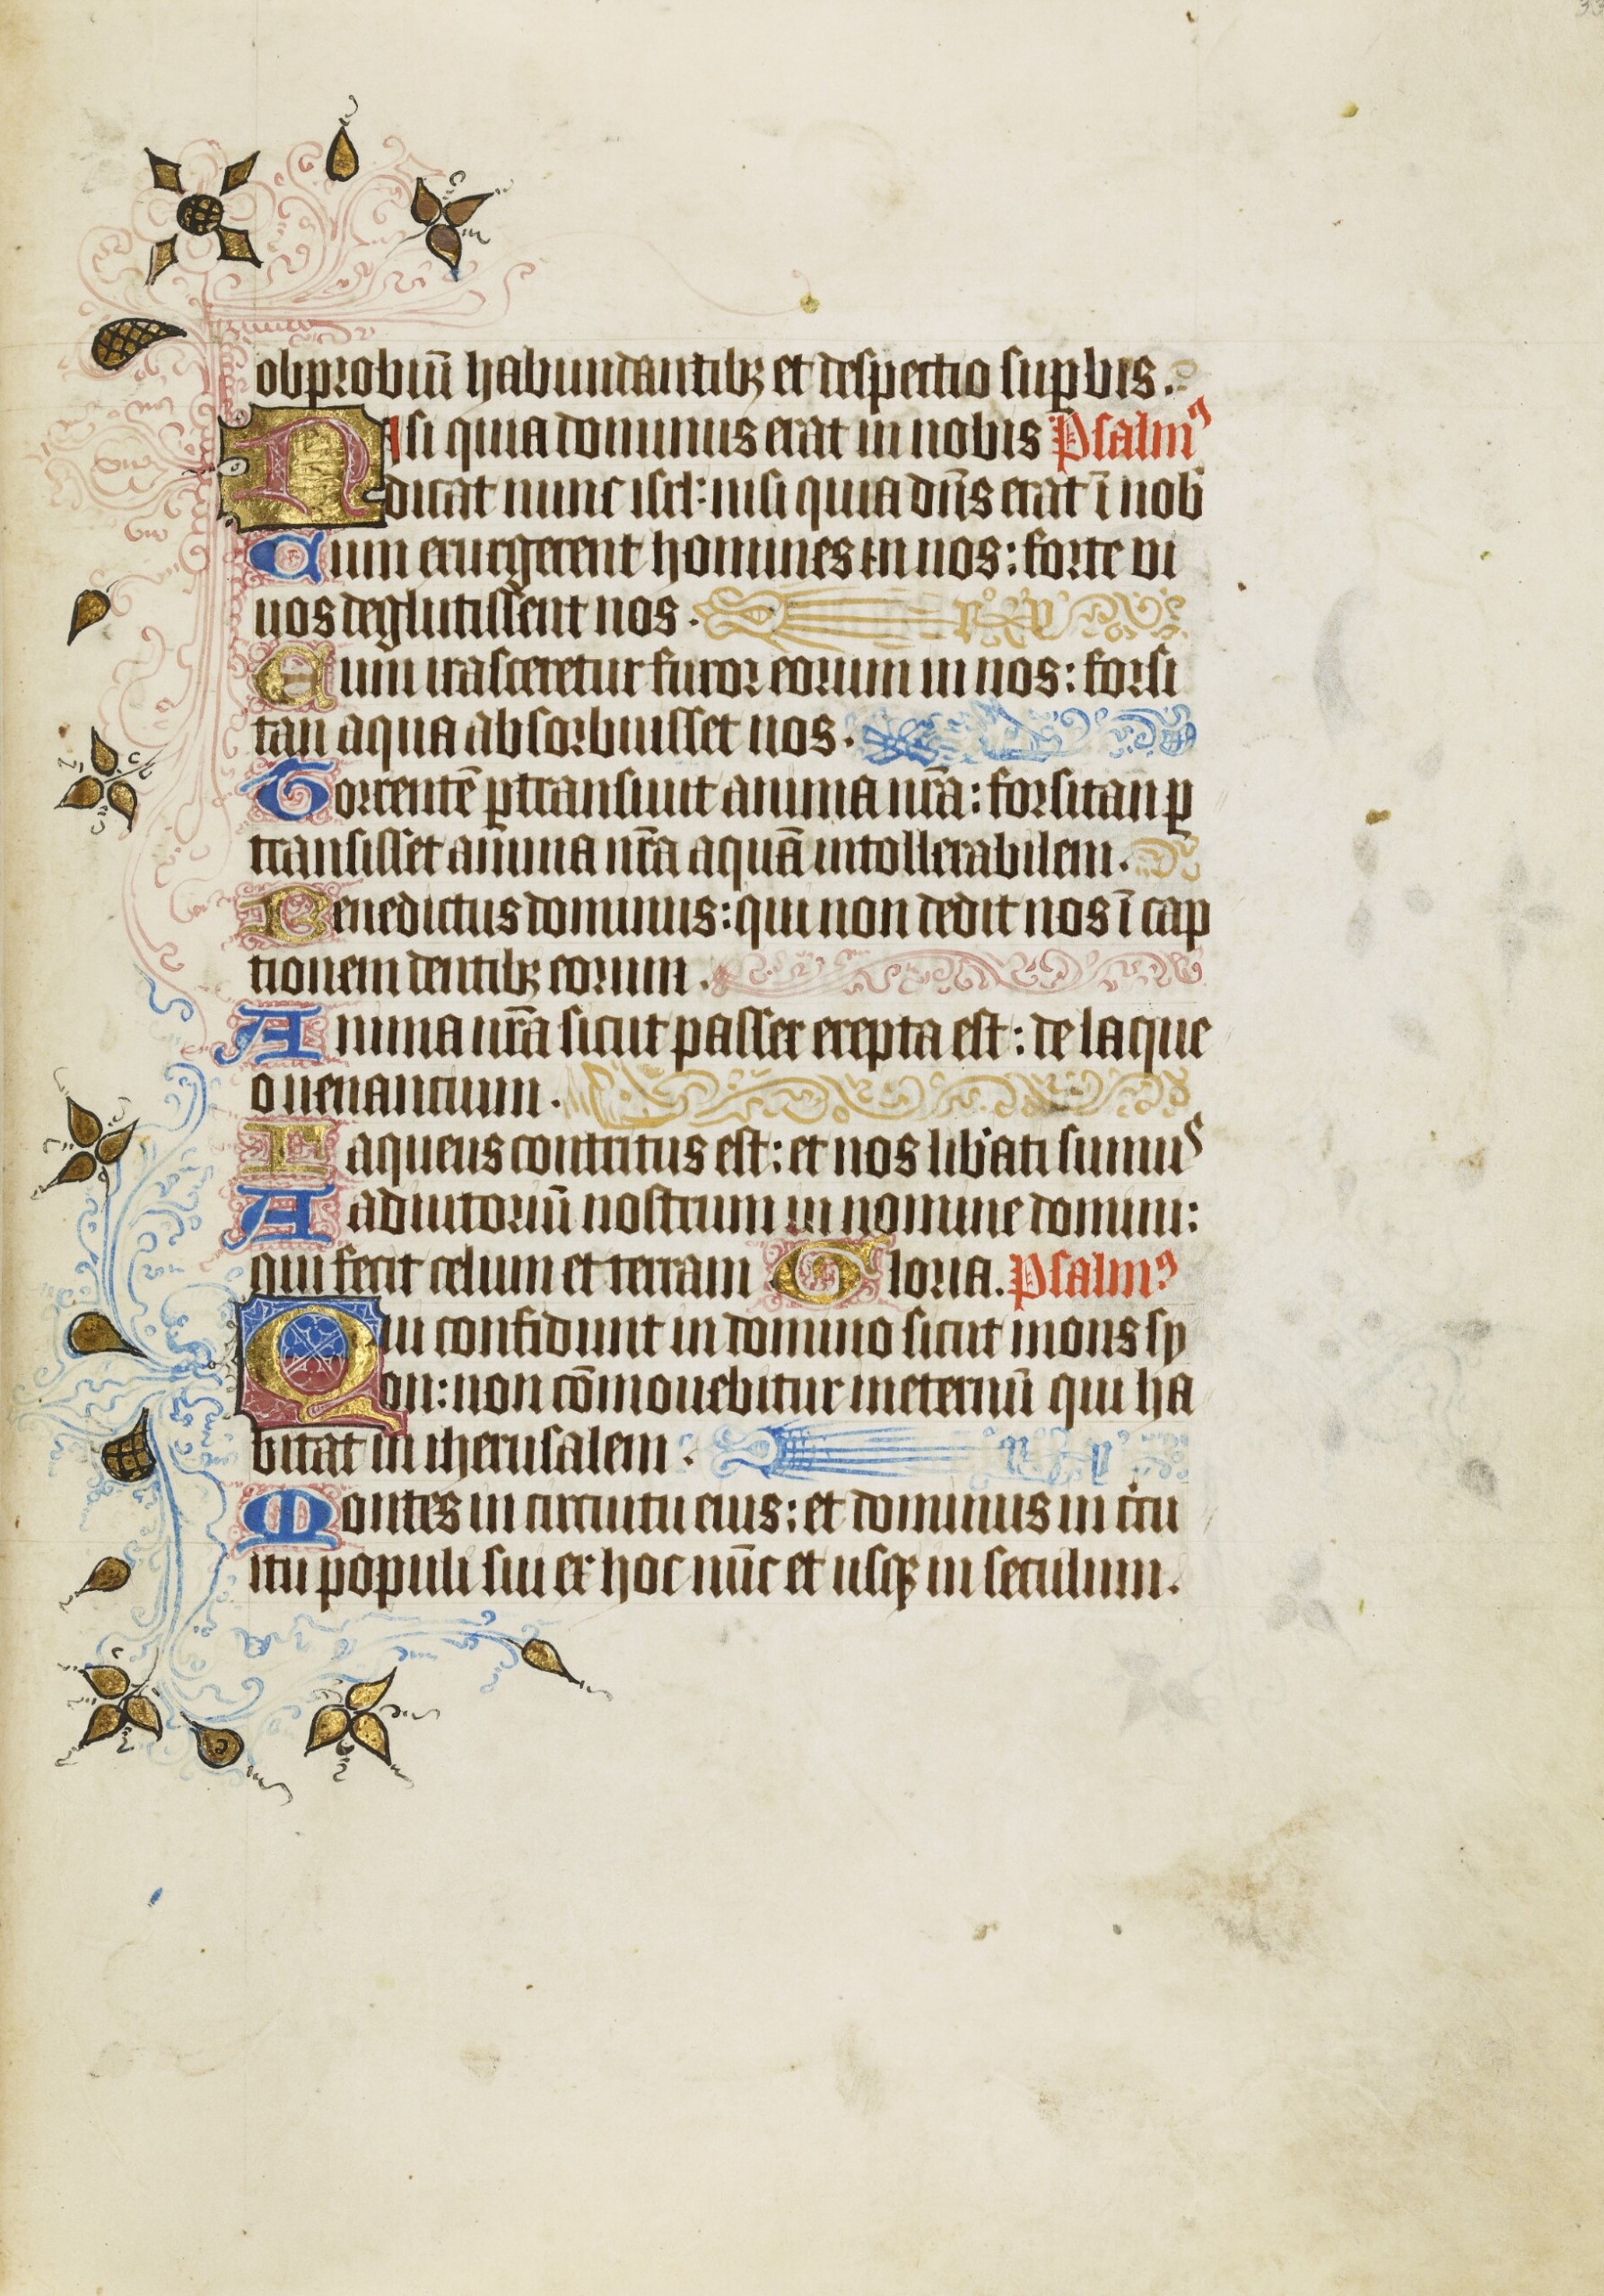 33
obprobiū habundantibꝫ et despectio suꝑbis.
Nisi quia dominus erat in nobis Psalmꝰ
dicat nunc isrl: nisi quia dn̄s erat ī nob̄
Cum exurgerent homines in nos: forte vi
uos deglutissent nos.
Cum irasceretur furor eorum in nos: forsi
tan aqua absorbuisset nos.
Torrentē ꝑtransiuit anima nr̄a: forsitan ꝑ
transisset anima nr̄a aquā intollerabilem.
Benedictus dominus: qui non dedit nos ī cap
tionem dentibꝫ eorum.
Anima nr̄a sicut passer erepta est: de laque
o uenancium.
Laqueus contritus est: et nos lib̄ati sumus
Aadiutoriū nostrum in nomine domini:
qui fecit celum et terram Gloria. Psalmꝰ
Qui confidunt in domino sicut mons sy
on: non cōmouebitur ineternū qui ha
bitat in iherusalem:
Montes in circuitu eius: et dominus in circu
itu populi sui ex hoc nūc et usqꝫ in seculum.